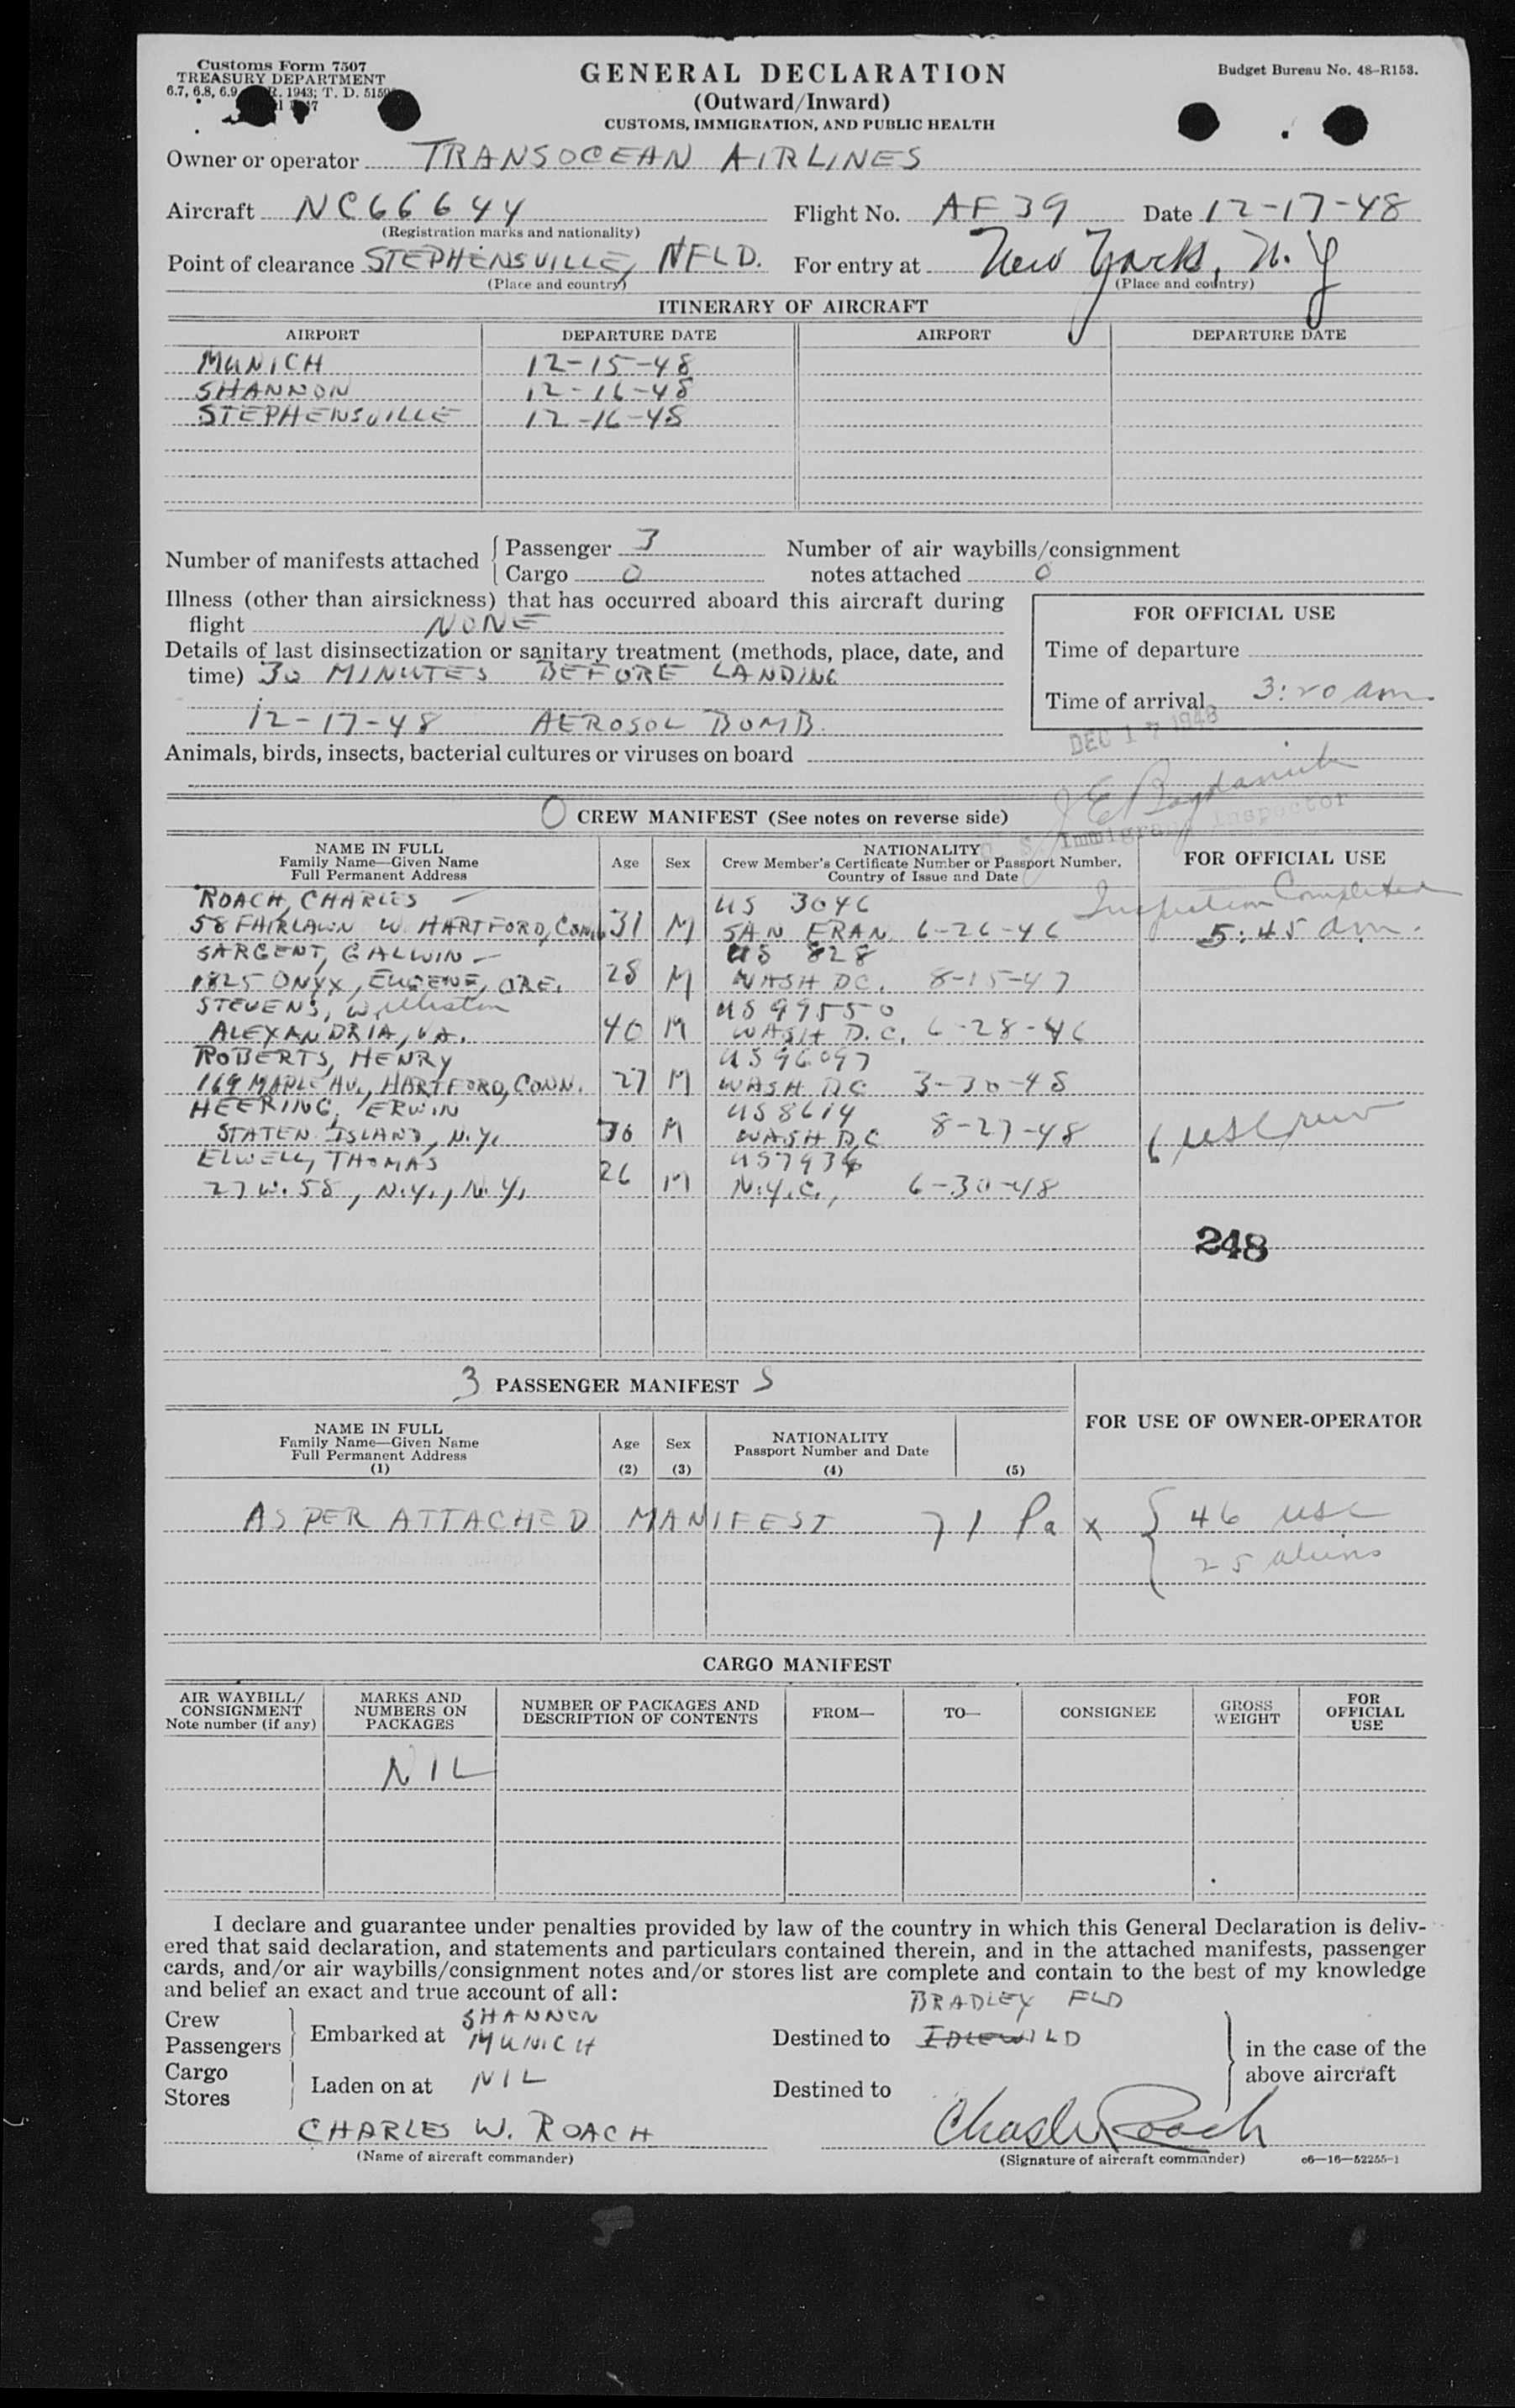 Customs Form 7507
TREASURY DEPARTMENT
GENERAL DECLARATION
(Outward/Inward)
CUSTOMS, IMMIGRATION, AND PUBLIC HEALTH
Budget Bureau No. 48-R153.
Owner or operator TRANSOCEAN AIRLINES
Aircraft NC66644 Flight No. AF 39 Date 12-17-48
(Registration marks and nationality)
Point of clearance STEPHENSVILLE, NFLD. For entry at New York, N.Y
(Place and country) (Place and country)
ITINERARY OF AIRCRAFT
AIRPORT DEPARTURE DATE AIRPORT DEPARTURE DATE
MUNICH 12-15-48
SHANNON 12-16-48
STEPHENSVILLE 12-16-48
Number of manifests attached Passenger 3 Number of air waybills/consignment
Cargo 0 notes attached 0
Illness (other than airsickness) that has occurred aboard this aircraft during
flight NONE
FOR OFFICIAL USE
Details of last disinsectization or sanitary treatment (methods, place, date, and
time) 30 MINUTES BEFORE LANDING
12-17-48 AEROSOL BOMB.
Time of departure
Time of arrival 3:20 am.
DEC 17 1948
Animals, birds, insects, bacterial cultures or viruses on board
Immigrant Inspector
0 CREW MANIFEST (See notes on reverse side)
NAME IN FULL
Family Name—Given Name
Full Permanent Address
Age Sex
NATIONALITY
Crew Member's Certificate Number or Passport Number.
Country of Issue and Date
FOR OFFICIAL USE
Inspection Completed
5:45 am.
ROACH, CHARLES — US 3046
58 FAIRLAWN W. HARTFORD, CONN 31 M SAN FRAN 6-26-46
SARGENT, GALWIN — US 828
1825 ONYX, EUGENE, ORE. 28 M WASH DC. 8-15-47
STEVENS, Williston US 99550
ALEXANDRIA, VA. 40 M WASH D.C. 6-28-46
ROBERTS, HENRY US 96097
169 MAPLE AV., HARTFORD, CONN. 27 M WASH DC 3-30-48
HEERING, ERWIN US 8614
STATEN ISLAND, N.Y. 30 M WASH DC 8-27-48
ELWELL, THOMAS
27 W. 58, N.Y., N.Y. 26 M N.Y.C., 6-30-48
248
3 PASSENGER MANIFEST S
FOR USE OF OWNER-OPERATOR
NAME IN FULL
Family Name—Given Name
Full Permanent Address
(1)
Age
(2)
Sex
(3)
NATIONALITY
Passport Number and Date
(4)
(5)
AS PER ATTACHED MANIFEST 71 Pax 46 USC
25 aliens
CARGO MANIFEST
AIR WAYBILL/
CONSIGNMENT
Note number (if any)
MARKS AND
NUMBERS ON
PACKAGES
NUMBER OF PACKAGES AND
DESCRIPTION OF CONTENTS
FROM— TO— CONSIGNEE
GROSS
WEIGHT
FOR
OFFICIAL
USE
NIL
I declare and guarantee under penalties provided by law of the country in which this General Declaration is deliv-
ered that said declaration, and statements and particulars contained therein, and in the attached manifests, passenger
cards, and/or air waybills/consignment notes and/or stores list are complete and contain to the best of my knowledge
and belief an exact and true account of all:
BRADLEY FLD
Crew
Passengers
Embarked at SHANNON
MUNICH
Destined to IDLEWILD
in the case of the
above aircraft
Cargo
Stores
Laden on at NIL
Destined to
CHARLES W. ROACH Charles Roach
(Name of aircraft commander) (Signature of aircraft commander) c6—16—52255-1